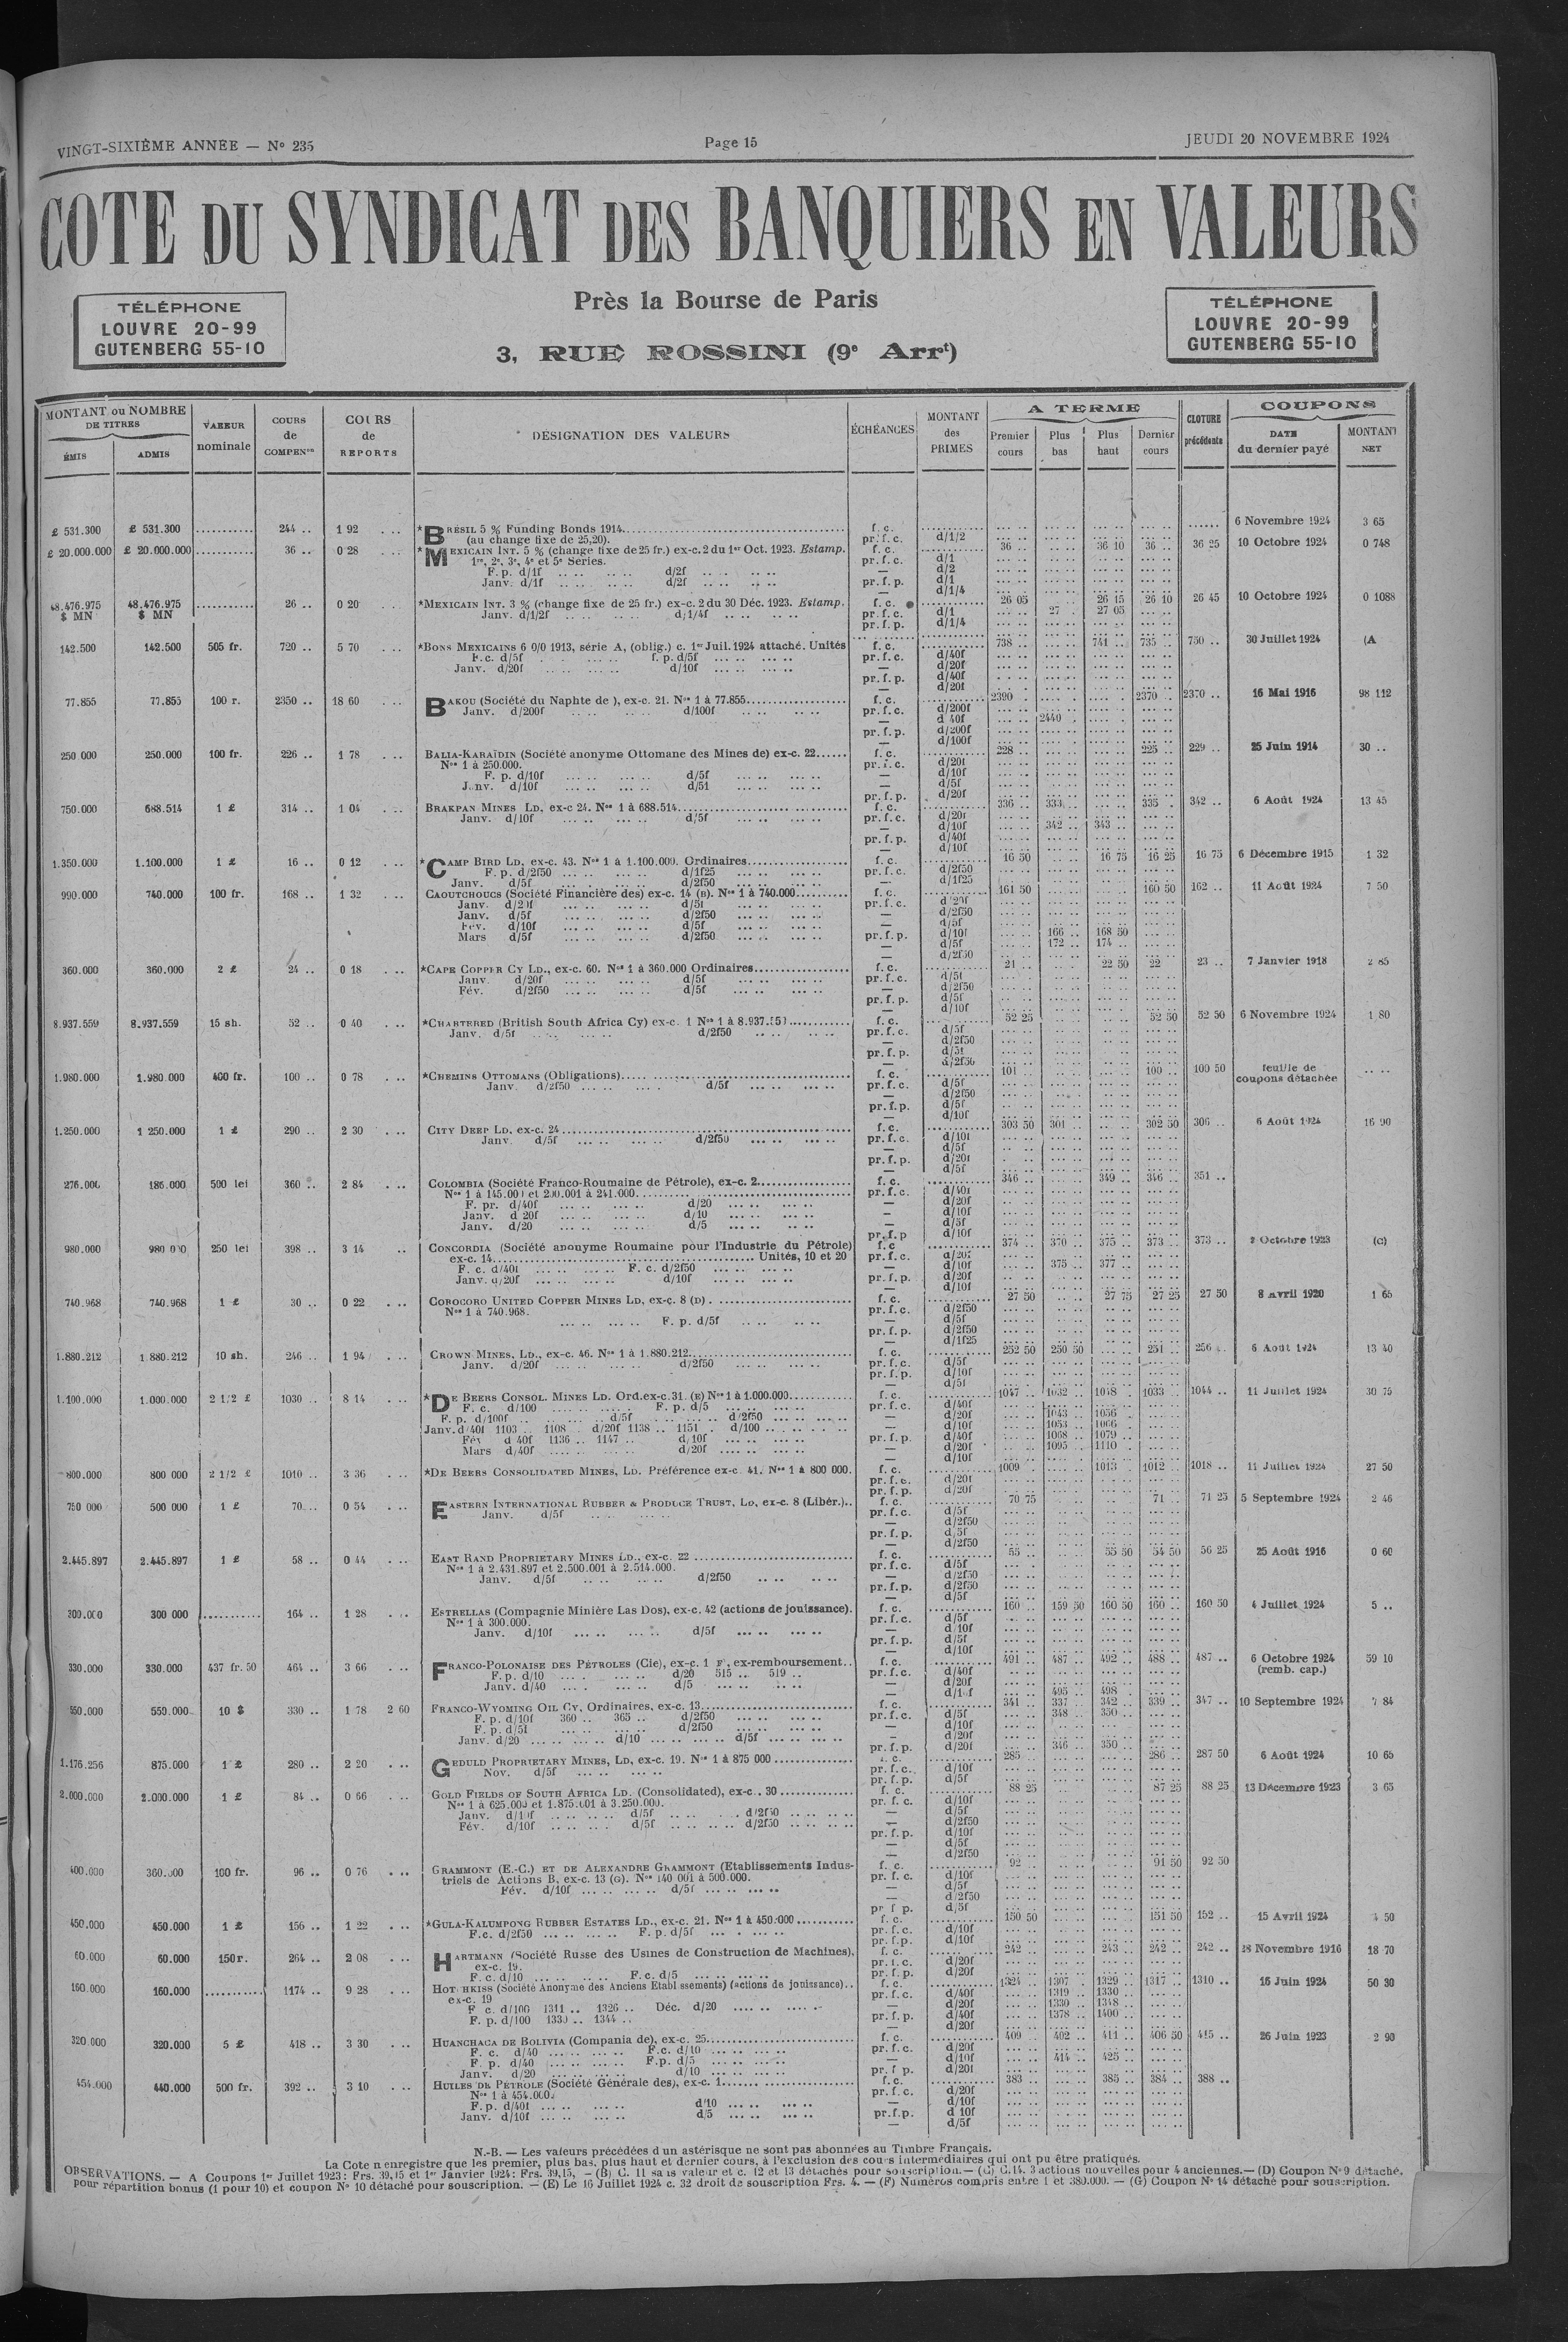 VINGT-SIXIÈME ANNÉE — N° 235
Page 15
JEUDI 20 NOVEMBRE 1924
COTE DU SYNDICAT DES BANQUIERS EN VALEURS
Près la Bourse de Paris
3, RUE ROSSINI (9e Arrt)
TÉLÉPHONE
LOUVRE 20-99
GUTENBERG 55-10
TÉLÉPHONE
LOUVRE 20-99
GUTENBERG 55-10
MONTANT ou NOMBRE DE TITRES
ÉMIS ADMIS
VALEUR nominale
COURS de COMPENon
COURS de REPORTS
DÉSIGNATION DES VALEURS
ÉCHÉANCES
MONTANT des PRIMES
A TERME
Premier cours Plus bas Plus haut Dernier cours
CLOTURE précédente
COUPONS
DATE du dernier payé MONTANT NET
£ 531.300 £ 531.300 244 .. 1 92 *BRÉSIL 5 % Funding Bonds 1914 f. c. 6 Novembre 1924 3 65
(au change fixe de 25,20). pr. f. c. d/1/2
£ 20.000.000 £ 20.000.000 36 .. 0 28 *MEXICAIN INT. 5 % (change fixe de 25 fr.) ex-c. 2 du 1er Oct. 1923. Estamp. f. c. 36 .. 36 10 36 .. 36 25 10 Octobre 1924 0 748
1re, 2e, 3e, 4e et 5e Séries. pr. f. c. d/1
F. p. d/1f d/2f — d/2
Janv. d/1f d/2f pr. f. p. d/1
d/1/4
48.476.975 $ MN 48.476.975 $ MN 26 .. 0 20 *MEXICAIN INT. 3 % (change fixe de 25 fr.) ex-c. 2 du 30 Déc. 1923. Estamp. f. c. 26 05 26 15 26 10 26 45 10 Octobre 1924 0 1088
Janv. d/1/2f d/1/4f pr. f. c. d/1 27 . 27 05
pr. f. p. d/1/4
142.500 142.500 505 fr. 720 .. 5 70 *BONS MEXICAINS 6 0/0 1913, série A, (oblig.) c. 1er Juil. 1924 attaché. Unités f. c. 738 .. 741 .. 735 .. 750 .. 30 Juillet 1924 (A
F.c. d/5f f. p. d/5f pr. f. c. d/40f
Janv. d/20f d/10f — d/20f
pr. f. p. d/40f
— d/20f
77.855 77.855 100 r. 2350 .. 18 60 BAKOU (Société du Naphte de ), ex-c. 21. Nos 1 à 77.855 f. c. 2390 .. 2370 .. 2370 .. 16 Mai 1916 98 112
Janv. d/200f d/100f pr. f. c. d/200f
— d 40f 2440 .
pr. f. p. d/200f
— d/100f
250 000 250.000 100 fr. 226 .. 1 78 BALIA-KARAÏDIN (Société anonyme Ottomane des Mines de) ex-c. 22 f. c. 228 .. 225 .. 229 .. 25 Juin 1914 30 ..
Nos 1 à 250.000. pr. f. c. d/20f
F. p. d/10f d/5f — d/10f
Janv. d/10f d/5f — d/5f
pr. f. p. d/20f
750.000 688.514 1 £ 314 .. 1 04 BRAKPAN MINES LD, ex-c 24. Nos 1 à 688.514 f. c. 336 .. 333 .. 335 .. 342 .. 6 Août 1924 13 45
Janv. d/10f d/5f pr. f. c. d/20f
— d/10f 342 .. 343 ..
pr. f. p. d/40f
— d/10f
1.350.000 1.100.000 1 £ 16 .. 0 12 *CAMP BIRD LD, ex-c. 43. Nos 1 à 1.100.000. Ordinaires f. c. 16 50 16 75 16 25 16 75 6 Décembre 1915 1 32
F. p. d/2f50 d/1f25 pr. f. c. d/2f50
Janv. d/5f d/2f50 — d/1f25
990.000 740.000 100 fr. 168 .. 1 32 CAOUTCHOUCS (Société Financière des) ex-c. 14 (B). Nos 1 à 740.000 f. c. 161 50 160 50 162 .. 11 Août 1924 7 50
Janv. d/20f d/5f pr. f. c. d/20f
Janv. d/5f d/2f50 — d/2f50
Fév. d/10f d/5f — d/5f
Mars d/5f d/2f50 pr. f. p. d/10f 166 .. 168 50
— d/5f 172 .. 174 ..
— d/2f50
360.000 360.000 2 £ 24 .. 0 18 *CAPE COPPER CY LD., ex-c. 60. Nos 1 à 360.000 Ordinaires f. c. 21 .. 22 50 22 23 .. 7 Janvier 1918 2 85
Janv. d/20f d/5f pr. f. c. d/5f
Fév. d/2f50 d/5f — d/2f50
pr. f. p. d/5f
— d/10f
8.937.559 8.937.559 15 sh. 52 .. 0 40 *CHARTERED (British South Africa Cy) ex-c. 1 f. c. 52 25 52 50 52 50 6 Novembre 1924 1 80
Janv. d/5f d/2f50 pr. f. c. d/5f
— d/2f50
pr. f. p. d/5f
— d/2f50
1.980.000 1.980.000 400 fr. 100 .. 0 78 *CHEMINS OTTOMANS (Obligations) f. c. 101 .. 100 .. 100 50 feuille de coupons détachée
Janv. d/2f50 d/5f pr. f. c. d/5f
— d/2f50
pr. f. p. d/5f
— d/10f
1.250.000 1 250.000 1 £ 290 .. 2 30 CITY DEEP LD, ex-c. 24 f. c. 303 50 301 302 50 306 .. 6 Août 1924 16 90
Janv. d/5f d/2f50 pr. f. c. d/10f
— d/5f
pr. f. p. d/20f
— d/5f
276.000 186.000 500 lei 360 .. 2 84 COLOMBIA (Société Franco-Roumaine de Pétrole), ex-c. 2 f. c. 346 .. 349 .. 346 .. 351 ..
Nos 1 à 145.000 et 200.001 à 241.000 pr. f. c. d/40f
F. pr. d/40f d/20 — d/20f
Janv. d 20f d/10 — d/10f
Janv. d/20 d/5 — d/5f
pr. f. p d/10f
980.000 980 000 250 lei 398 .. 3 14 CONCORDIA (Société anonyme Roumaine pour l'Industrie du Pétrole) f. c 374 .. 370 .. 375 .. 373 .. 373 .. 2 Octobre 1923 (C)
ex-c. 14 Unités, 10 et 20 pr. f. c. d/20f
F. c. d/40f F. c. d/2f50 — d/10f 375 .. 377 ..
Janv. d/20f d/10f pr. f. p. d/20f
— d/10f
740.968 740.968 1 £ 30 .. 0 22 COROCORO UNITED COPPER MINES LD, ex-c. 8 (D) f. c. 27 50 27 75 27 25 27 50 8 Avril 1920 1 65
Nos 1 à 740.968. pr. f. c. d/2f50
F. p. d/5f — d/5f
pr. f. p. d/2f50
— d/1f25
1.880.212 1.880.212 10 sh. 246 .. 1 94 CROWN MINES, LD., ex-c. 46. Nos 1 à 1.880.212 f. c. 252 50 250 50 251 .. 256 .. 6 Août 1924 13 40
Janv. d/20f d/2f50 pr. f. c. d/5f
pr. f. p. d/10f
— d/5f
1.100.000 1.000.000 2 1/2 £ 1030 .. 8 14 *DE BEERS CONSOL. MINES LD. Ord. ex-c. 31. (E) Nos 1 à 1.000.000 f. c. 1047 .. 1032 .. 1048 .. 1033 .. 1044 .. 11 Juillet 1924 30 75
F. c. d/100 F. p. d/5 pr. f. c. d/40f
F. p. d/100f d/5f d/2f50 — d/20f 1043 .. 1056 ..
Janv. d/40f 1103 .. 1108 d/20f 1138 .. 1151 d/100 — d/10f 1053 .. 1066 ..
Fév d 40f 1136 .. 1147 .. d/10f pr. f. p. d/40f 1068 .. 1079 ..
Mars d/40f d/20f — d/20f 1095 .. 1110 ..
— d/10f
800.000 800 000 2 1/2 £ 1010 .. 3 36 *DE BEERS CONSOLIDATED MINES, LD. Préférence ex-c. 41. Nos 1 à 800 000. f. c. 1009 .. 1013 .. 1012 .. 1018 .. 11 Juillet 1924 27 50
pr. f. c. d/20f
pr. f. p. d/20f
750 000 500 000 1 £ 70 .. 0 54 EASTERN INTERNATIONAL RUBBER & PRODUCE TRUST, LD, ex-c. 8 (Libér.).. f. c. 70 75 71 .. 71 25 5 Septembre 1924 2 46
Janv. d/5f pr. f. c. d/5f
— d/2f50
pr. f. p. d/5f
— d/2f50
2.445.897 2.445.897 1 £ 58 .. 0 44 EAST RAND PROPRIETARY MINES LD., ex-c. 22 f. c. 55 .. 55 50 54 50 56 25 25 Août 1916 0 60
Nos 1 à 2.431.897 et 2.500.001 à 2.514.000. pr. f. c. d/5f
Janv. d/5f d/2f50 — d/2f50
pr. f. p. d/2f50
— d/5f
300.000 300 000 164 .. 1 28 ESTRELLAS (Compagnie Minière Las Dos), ex-c. 42 (actions de jouissance). f. c. 160 .. 159 50 160 50 160 .. 160 50 4 Juillet 1924 5 ..
Nos 1 à 300.000. pr. f. c. d/5f
Janv. d/10f d/5f — d/10f
pr. f. p. d/5f
— d/10f
330.000 330.000 437 fr. 50 464 .. 3 66 FRANCO-POLONAISE DES PÉTROLES (Cie), ex-c. 1 F, ex-remboursement.. f. c. 491 .. 487 .. 492 .. 488 .. 487 .. 6 Octobre 1924 59 10
F. p. d/10 d/20 515 .. 519 .. pr. f. c. d/40f (remb. cap.)
Janv. d/40 d/5 — d/20f
— d/10f 495 .. 498 ..
550.000 550.000 10 $ 330 .. 1 78 2 60 FRANCO-WYOMING OIL CY, Ordinaires, ex-c. 13 f. c. 341 .. 337 .. 342 .. 339 .. 347 .. 10 Septembre 1924 7 84
F. p. d/10f 360 .. 365 .. d/2f50 pr. f. c. d/5f 348 .. 350 ..
F. p. d/5f d/2f50 — d/10f
Janv. d/20 d/10 d/5f — d/20f
pr. f. p. d/20f 346 .. 350 ..
1.176.256 875.000 1 £ 280 .. 2 20 GEDULD PROPRIETARY MINES, LD, ex-c. 19. Nos 1 à 875 000 f. c. 285 .. 286 .. 287 50 6 Août 1924 10 65
Nov. d/5f pr. f. c. d/10f
pr. f. p. d/5f
2.000.000 2.000.000 1 £ 84 .. 0 66 GOLD FIELDS OF SOUTH AFRICA LD. (Consolidated), ex-c. 30 f. c. 88 25 87 25 88 25 13 Décembre 1923 3 65
Nos 1 à 625.000 et 1.875.001 à 3.250.000. pr. f. c. d/10f
Janv. d/10f d/5f d/2f50 — d/5f
Fév. d/10f d/5f d/2f50 — d/2f50
pr. f. p. d/10f
— d/5f
— d/2f50
400.000 360.000 100 fr. 96 .. 0 76 GRAMMONT (E.-C.) ET DE ALEXANDRE GRAMMONT (Etablissements Indus- f. c. 92 .. 91 50 92 50
triels de Actions B, ex-c. 13 (G). Nos 140 001 à 500.000. pr. f. c. d/10f
Fév. d/10f d/5f — d/5f
— d/2f50
pr f p. d/5f
450.000 450.000 1 £ 156 .. 1 22 *GULA-KALUMPONG RUBBER ESTATES LD., ex-c. 21. Nos 1 à 450.000 f. c. 150 50 151 50 152 .. 15 Avril 1924 4 50
F.c. d/2f50 F. p. d/5f pr. f. c. d/10f
pr. f. p. d/10f
60.000 60.000 150 r. 264 .. 2 08 HARTMANN (Société Russe des Usines de Construction de Machines), f. c. 242 .. 243 .. 242 .. 242 .. 18 Novembre 1916 18 70
ex-c. 19. pr. f. c. d/20f
F. c. d/10 F. c. d/5 pr. f. p. d/20f
160.000 160.000 1174 .. 9 28 HOTCHKISS (Société Anonyme des Anciens Etablissements) (actions de jouissance).. f. c. 1324 .. 1307 .. 1329 .. 1317 .. 1310 .. 16 Juin 1924 50 30
ex-c. 19 pr. f. c. d/40f 1319 .. 1330 ..
F c. d/100 1311 .. 1326 .. Déc. d/20 — d/20f 1330 .. 1348 ..
F. p. d/100 1330 .. 1344 .. pr. f. p. d/40f 1378 .. 1400 ..
d/20f
320.000 320.000 5 £ 418 .. 3 30 HUANCHACA DE BOLIVIA (Compania de), ex-c. 25 f. c. 409 .. 402 .. 411 .. 406 50 415 .. 26 Juin 1923 2 90
F. c. d/40 F.c. d/10 pr. f. c. d/20f
F. p. d/40 F.p. d/5 — d/10f 414 .. 425 ..
Janv. d/20 d/10 pr. f p. d/20f
454.000 440.000 500 fr. 392 .. 3 10 HUILES DE PÉTROLE (Société Générale des), ex-c. 1 f. c. 383 .. 385 .. 384 .. 388 ..
Nos 1 à 454.000. pr. f. c. d/20f
F. p. d/40f d/10 — d/10f
Janv. d/10f d/5 pr.f.p. d 10f
— d/5f
N.-B. — Les valeurs précédées d un astérisque ne sont pas abonnées au Timbre Français.
La Cote n enregistre que les premier, plus bas, plus haut et dernier cours, à l'exclusion des cours intermédiaires qui ont pu être pratiqués.
OBSERVATIONS. — A Coupons 1er Juillet 1923 : Frs. 39,15 et 1er Janvier 1924 : Frs. 39,15, — (B) C. 11 sans valeur et c. 12 et 13 détachés pour souscription. — (C) C.14. 3 actions nouvelles pour 4 anciennes. — (D) Coupon N° 9 détaché,
pour répartition bonus (1 pour 10) et coupon N° 10 détaché pour souscription. — (E) Le 16 Juillet 1924 c. 32 droit de souscription Frs. 4. — (F) Numéros compris entre 1 et 380.000. — (G) Coupon N° 14 détaché pour souscription.